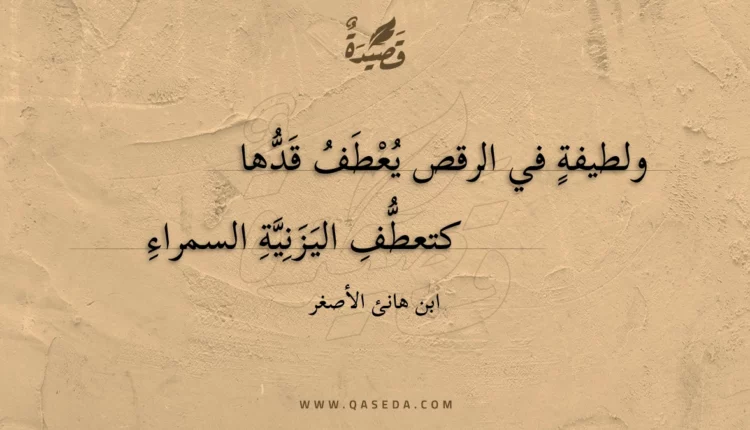 قَصِيدَةٌ
ولطيفةٍ في الرقص يُعْطَفُ قَدُّها
كتعطُّفِ اليَزَنِيَّةِ السمراءِ
ابن هانئ الأصغر
WWW.QASEDA.COM